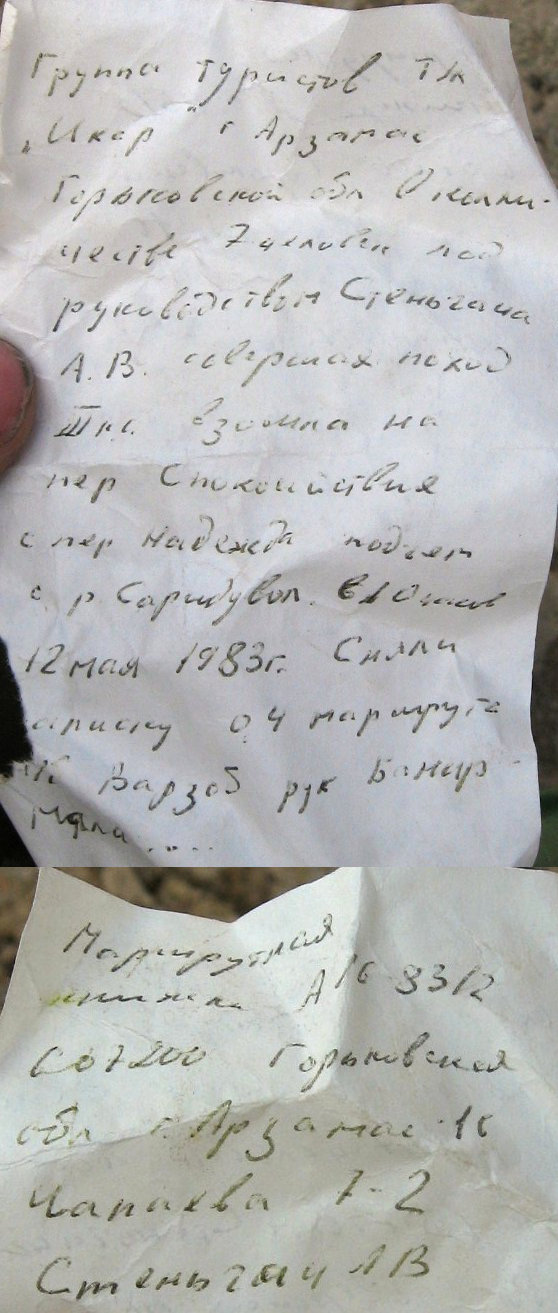 Группа туристов Т/к
"Икар" г Арзамас
Горьковской обл в количе-
честве 7 человек под
руководством Стеньгача
А. В. совершая поход
III к.с. взошла на
пер Спокойствия
с пер Надежда подъем
с р. Саридувал. в 10 часов
12 мая 1983г. Сняли
записку 04 маршрута
Варзоб рук
Маршрутная
книжка
607200 Горьковская
обл г. Арзамас-16
Чапаева 7-2
Стеньгач АВ